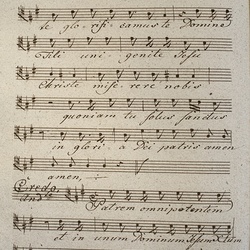 te glorificamus te Domine
Fili unigenite Jesu
Christe miserere nobis
quoniam tu solus sanctus
in gloria Dei patris amen
amen,
Credo
And
Patrem omnipotentem
et in unum Dominum Jesum